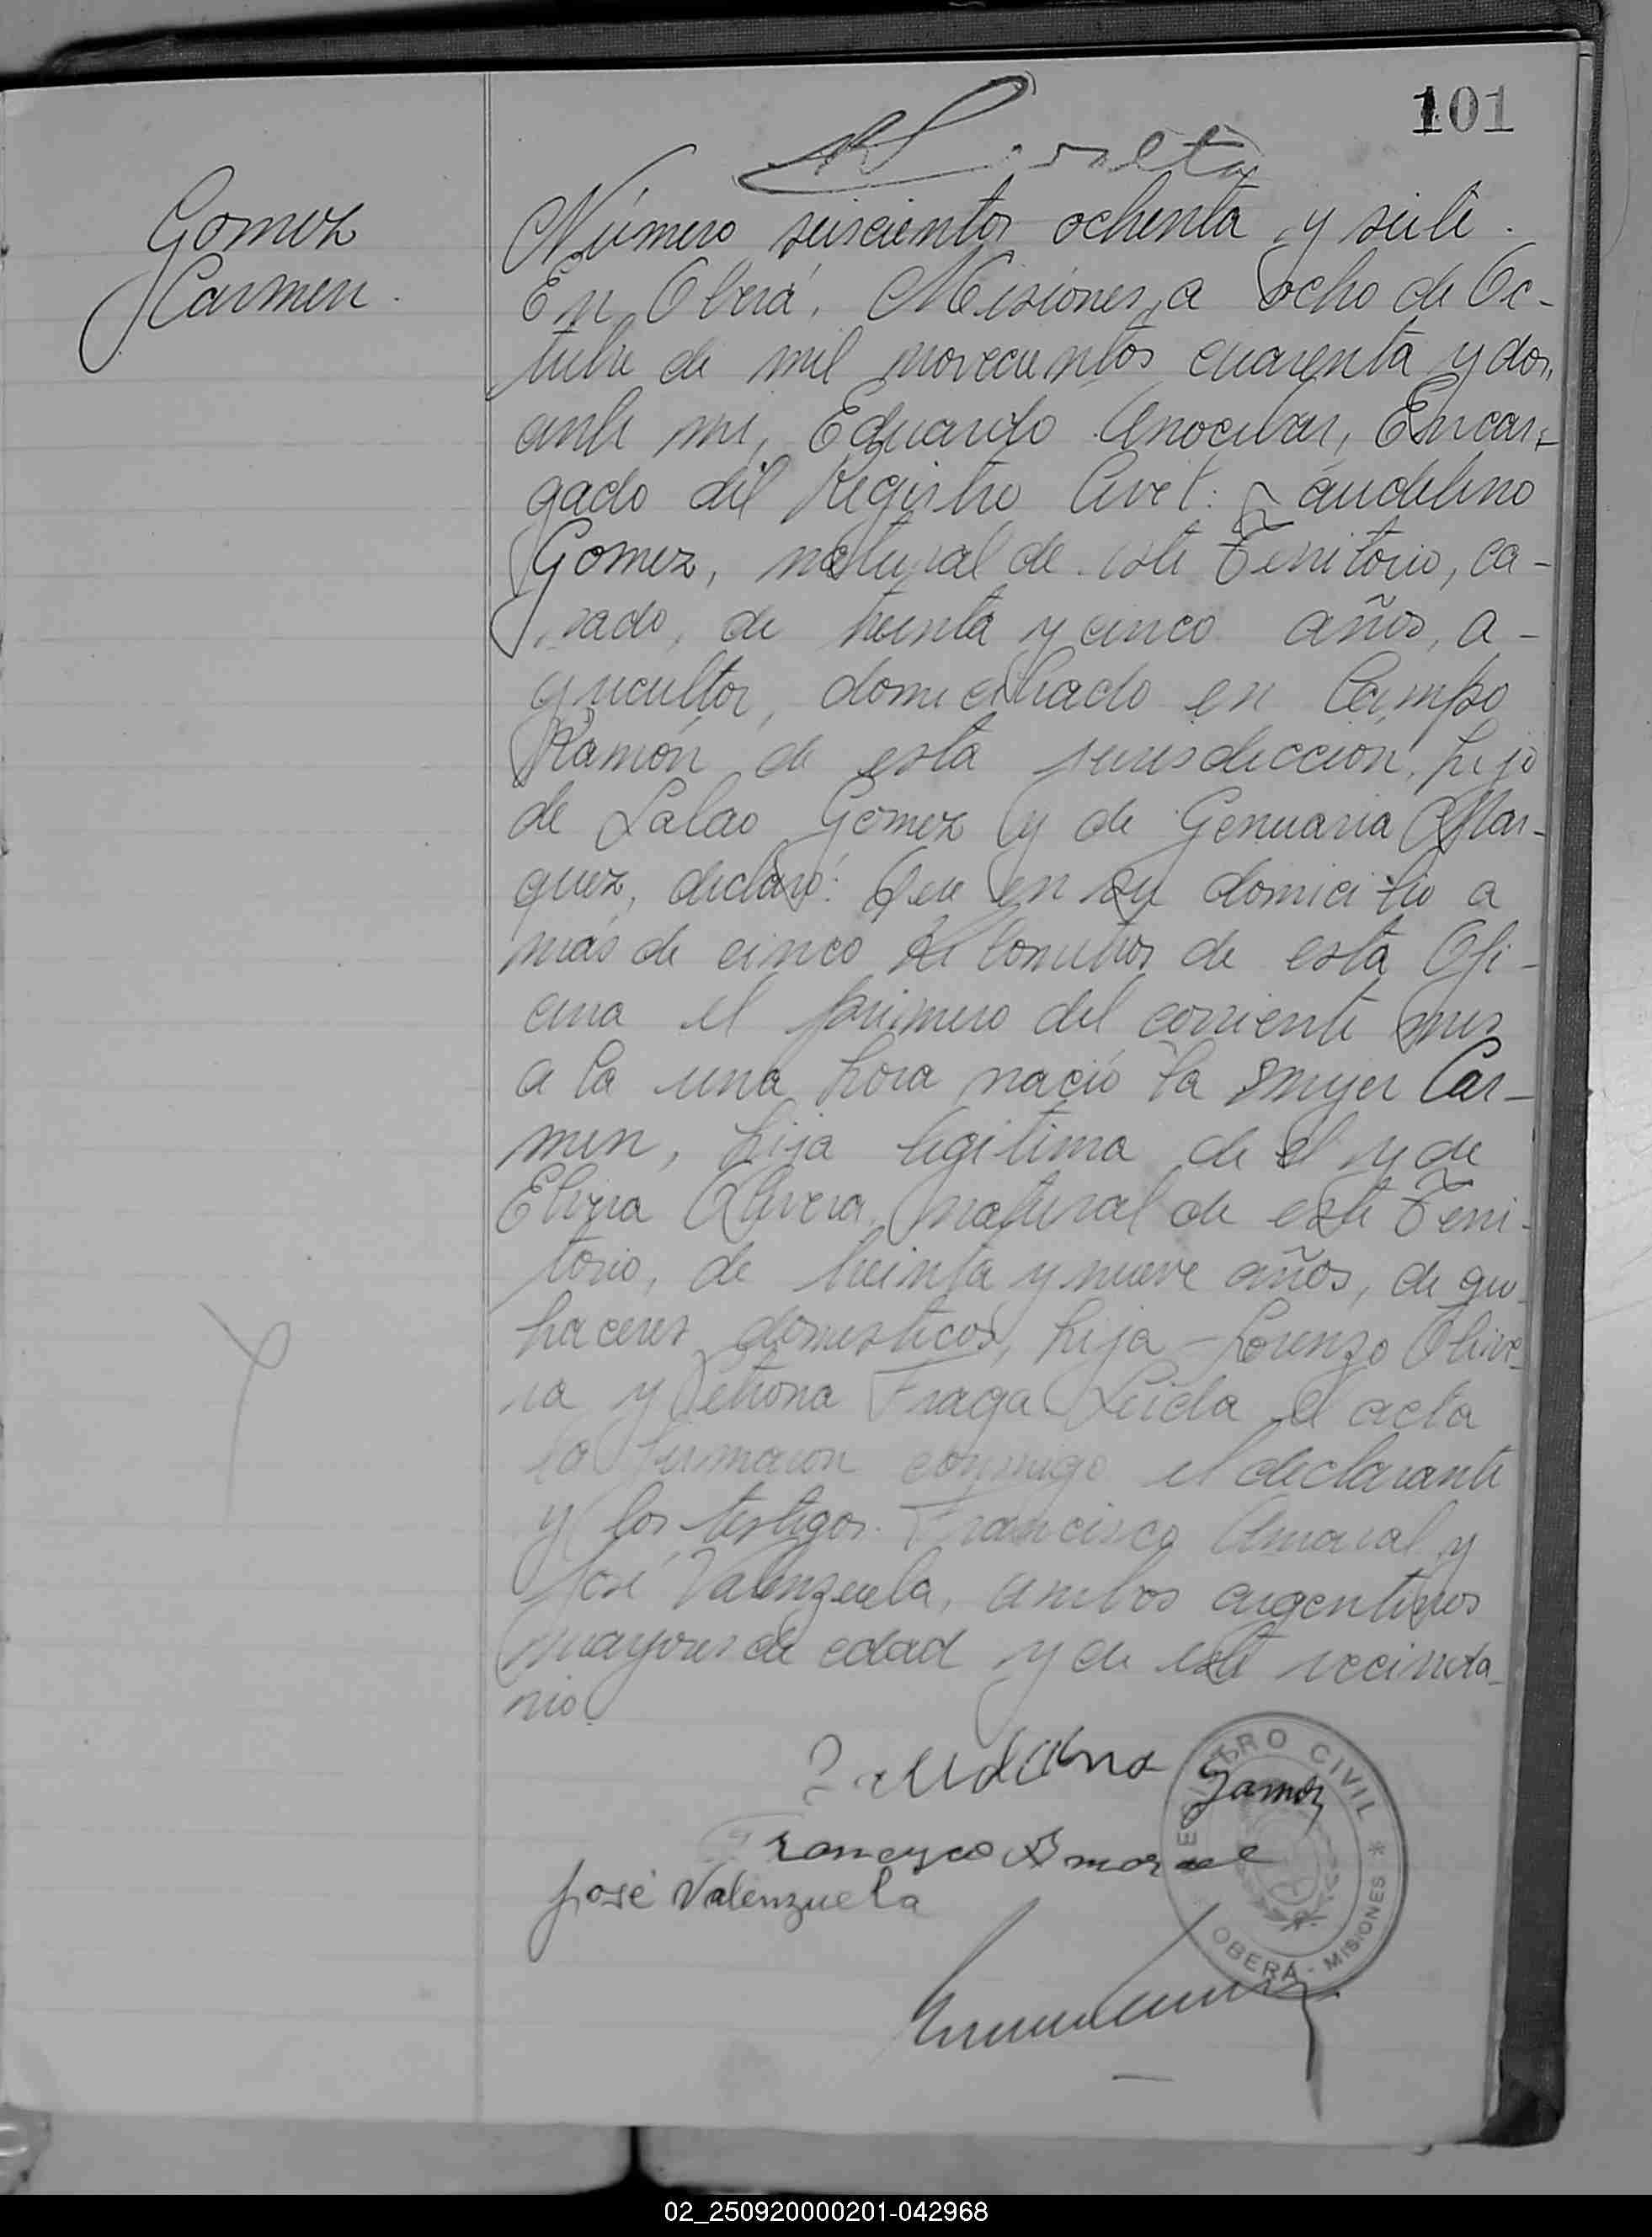 101
Gomez
Carmen.
Número seiscientos ochenta y siete.
En Oberá, Misiones, a ocho de Oc-
tubre de mil novecientos cuarenta y dos,
ante mi, Eduardo Anocibar, Encar-
gado del Registro Civil: Laudelino
Gomez, natural de este Territorio, ca-
sado, de treinta y cinco años, a-
gricultor, domiciliado en Campo
Ramón de esta jurisdiccion, hijo
de Lalao Gomez y de Genuaria Mar-
quez, declaró: Que en su domicilio a
más de cinco kilometros de esta Ofi-
cina el primero del corriente mes
a la una hora nació la mujer Car-
men, hija legitima de el y de
Elvira Olivera, natural de este Terri-
torio, de treinta y nueve años, de que-
haceres domesticos, hija Lorenzo Olive-
ra y Petrona Fraga. Leida el acta
la firmaron conmigo el declarante
y los testigos Francisco Amaral y
José Valenzuela, ambos argentinos
mayores de edad y de este vecinda-
rio.
Gomez
Francysco Amaral
José Valenzuela
REGISTRO CIVIL * OBERÁ - MISIONES
02_250920000201-042968